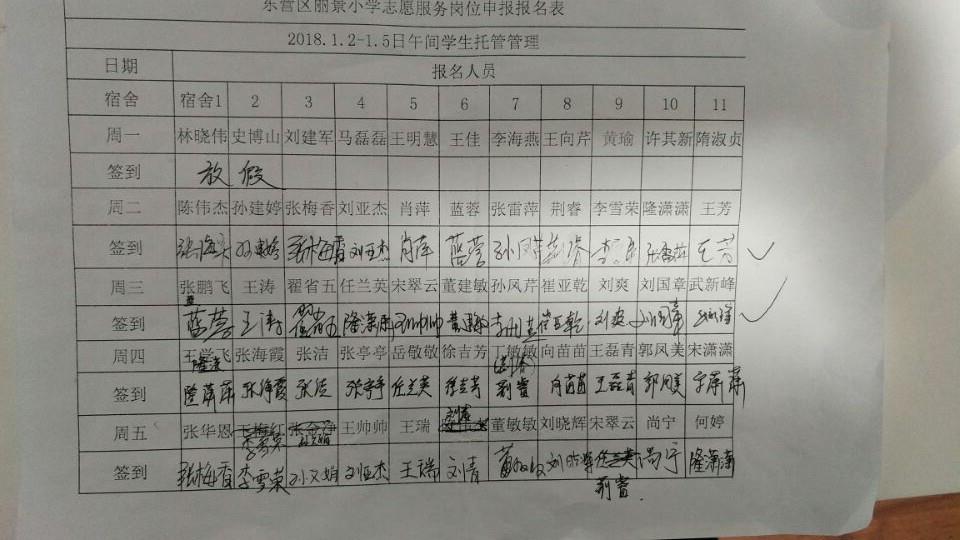 东营区丽景小学志愿服务岗位申报报名表
2018.1.2-1.5日午间学生托管管理
日期 报名人员
宿舍 宿舍1 2 3 4 5 6 7 8 9 10 11
周一 林晓伟 史博山 刘建军 马磊磊 王明慧 王佳 李海燕 王向芹 黄瑜 许其新 隋淑贞
签到 放假
周二 陈伟杰 孙建婷 张梅香 刘亚杰 肖萍 蓝蓉 张雷萍 荆睿 李雪荣 隆潇潇 王芳
签到 张梅香 刘亚杰 肖萍 蓝蓉 王芳
周三 张鹏飞 王涛 翟省五 任兰英 宋翠云 董建敏 孙凤芹 崔亚乾 刘爽 刘国章 武新峰
签到 蓝蓉 王涛 翟省五 隆潇潇 王帅帅 董建敏 崔亚乾 刘爽 刘国章
周四 王学飞 张海霞 张洁 张亭亭 岳敬敬 徐吉芳 丁敏敏 向苗苗 王磊青 郭凤美 宋潇潇
签到 隆潇潇 张海霞 张洁 张亭亭 任兰英 徐吉芳 荆睿 向苗苗 王磊青 郭凤美
周五 张华恩 李雪荣 王帅帅 王瑞 董敏敏 刘晓辉 宋翠云 尚宁 何婷
签到 张梅香 李雪荣 孙文娟 刘亚杰 王瑞 刘青 董敏敏 刘晓辉 任兰英 尚宁 隆潇潇
荆睿